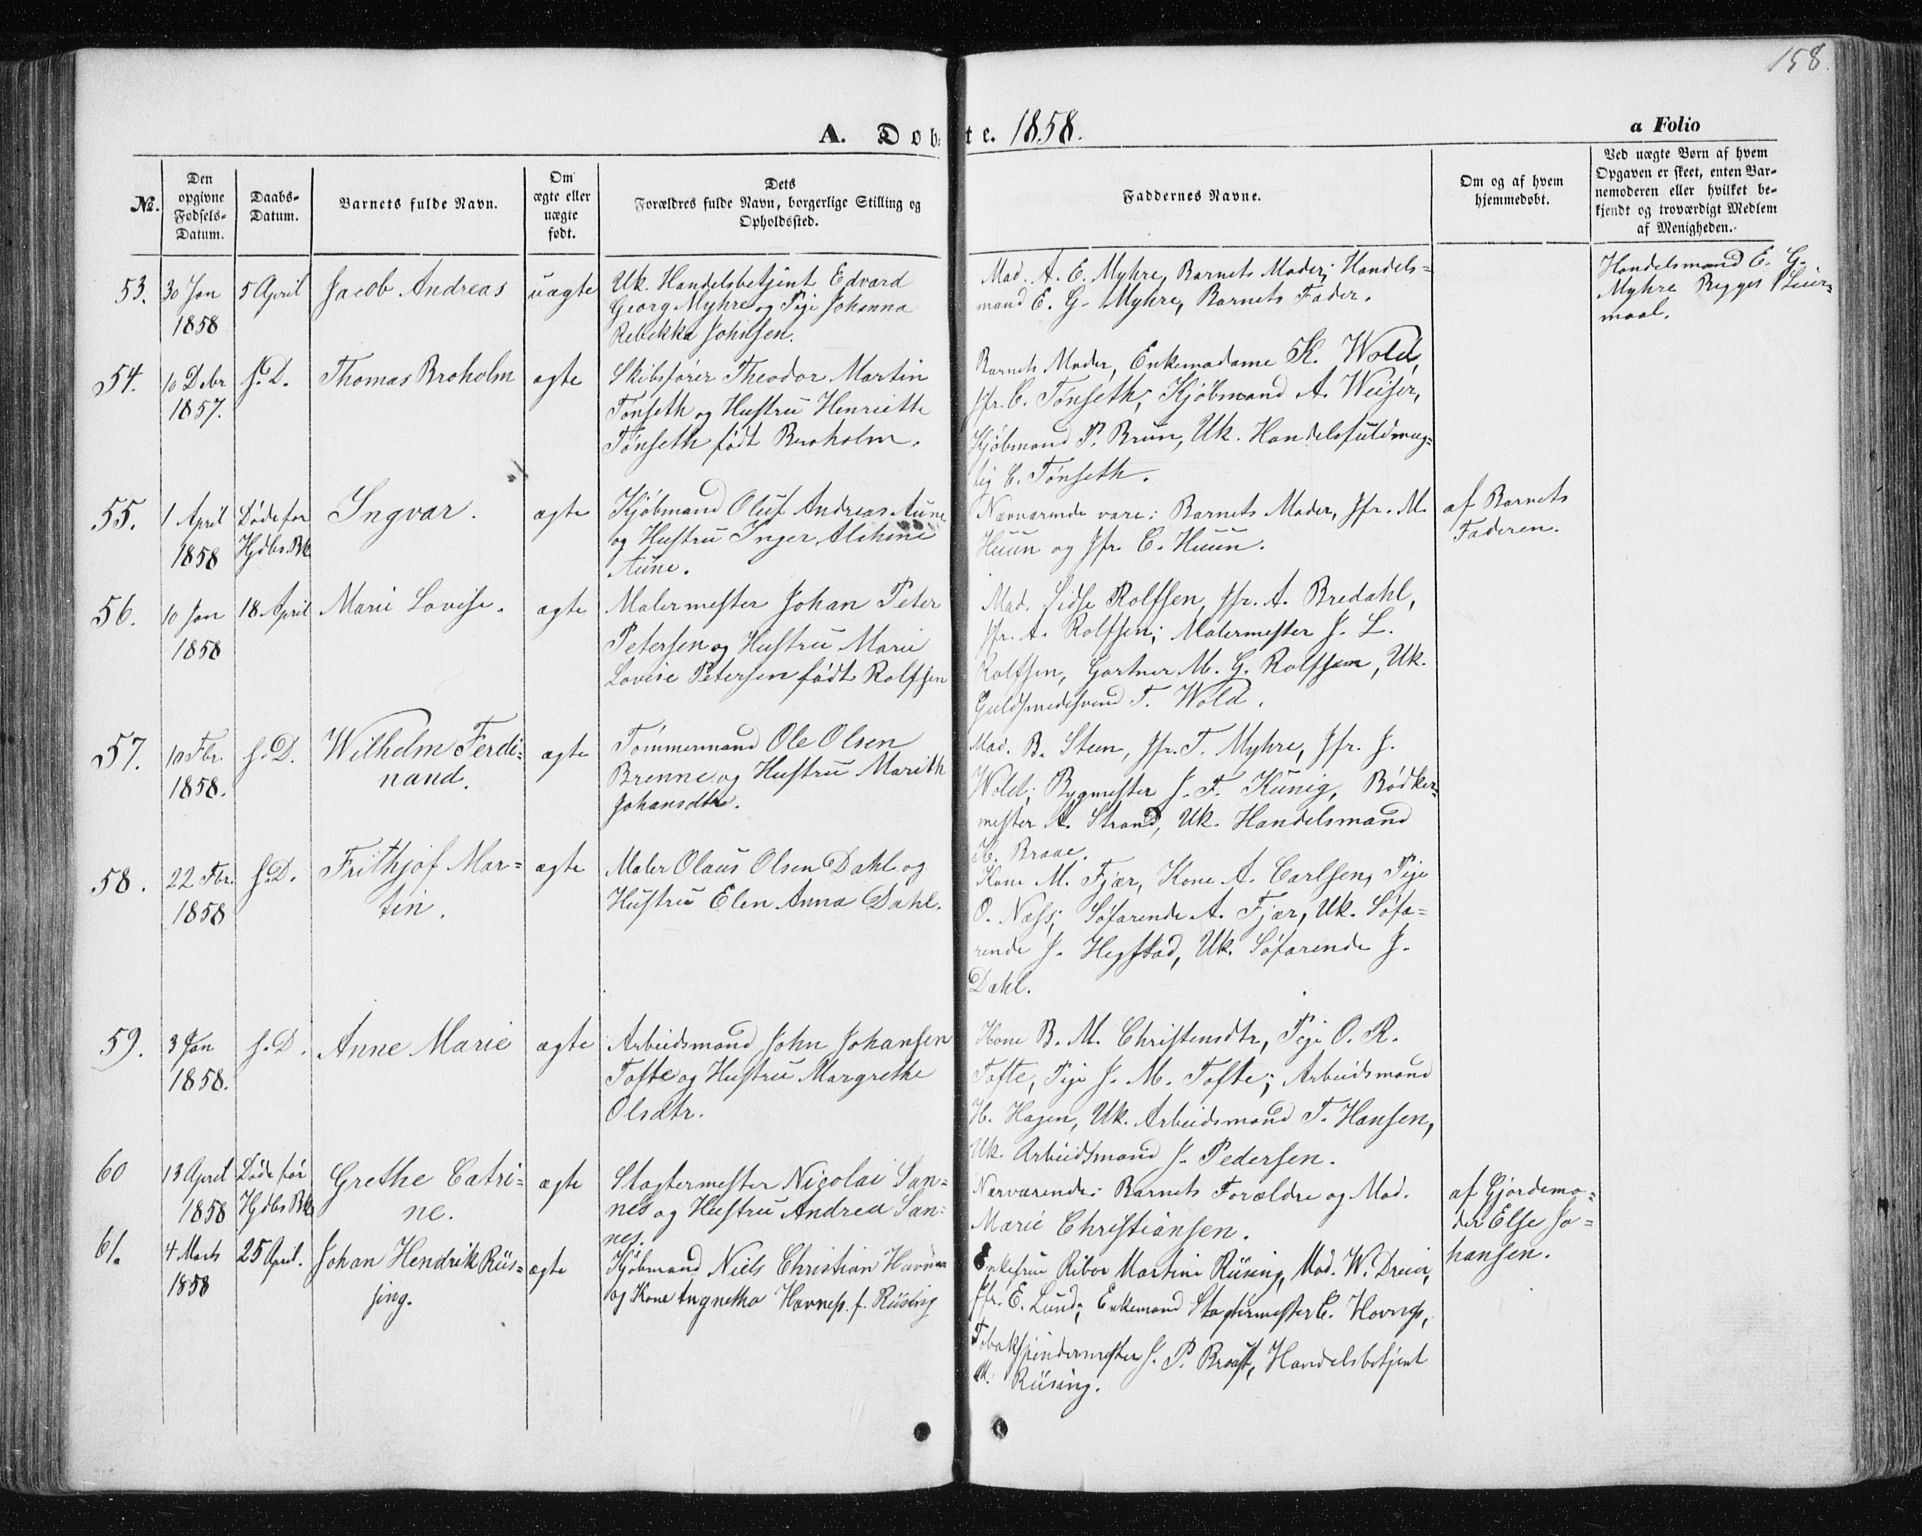 158.
A. Døbte. 1858.
a Folio
№.
Den opgivne Fødsels-Datum.
Daabs-Datum.
Barnets fulde Navn.
Om ægte eller uægte født.
Dets Forældres fulde Navn, borgerlige Stilling og Opholdssted.
Faddernes Navne.
Om og af hvem hjemmedøbt.
Ved uægte Børn af hvem Opgaven er skeet, enten Barnemoderen eller hvilket bekjendt og troværdigt Medlem af Menigheden.
53.
30 Jan
1858
5 April
Jacob Andreas
uægte
Uk. Handelsbetjent Edvard
Georg Myhre og Pige Johanna
Rebekka Johnsen.
Mad. A. E. Myhre, Barnets Moder; Handels-
mand E. G. Myhre, Barnets Fader.
Handelsmand E. G.
Myhre Begges Leier-
maal.
54.
10 Dcbr
1857.
s. D.
Thomas Broholm
ægte
Skibsfører Theodor Martin
Tønseth og Hustru Henriette
Tønseth født Broholm.
Barnets Moder, Enkemadame K. Wold,
Jfr. C. Tønseth; Kjøbmand A. Weiser,
Kjøbmand P. Brun, Uk. Handelsfuldmæg-
tig C. Tønseth.
55.
1 April
1858
Døde før
Hjdbs Bk
Ingvar.
ægte
Kjøbmand Oluf Andreas Aune
og Hustru Inger Alethine
Aune.
Nærværende vare: Barnets Moder, Jfr. M.
Huun og Jfr. C. Huun.
af Barnets
Faderen.
56.
10 Jan
1858
18 April
Marie Lovise.
ægte
Malermester Johan Peter
Petersen og Hustru Marie
Lovise Petersen født Rolfsen
Mad. Sidse Rolfsen, Jfr. A. Bredahl,
Jfr. A. Rolfsen; Malermester J. L.
Rolfsen, Gartner M. G. Rolfsen, Uk.
Guldsmedesvend T. Wold.
57.
10 Fbr.
1858.
s. D.
Wilhelm Ferdi-
nand.
ægte
Tømmermand Ole Olsen
Brenne og Hustru Marith
Johansdtr.
Mad. B. Steen, Jfr. T. Myhre, Jfr. J.
Wold; Bygmester J. F. Kunig, Bødker-
mester A. Strand, Uk. Handelsmand
H. Braae.
58.
22 Fbr.
1858
s. D.
Frithjof Mar-
tin.
ægte
Maler Olaus Olsen Dahl og
Hustru Elen Anna Dahl.
Kone M. Fjær, Kone A. Carlsen, Pige
O. Næss; Søfarende A. Fjær, Uk. Søfa-
rende J. Hegstad, Uk. Søfarende J.
Dahl.
59.
3 Jan
1858.
s. D.
Anne Marie
ægte
Arbeidsmand John Johansen
Tofte og Hustru Margrethe
Olsdtr.
Kone B. M. Christensdtr, Pige O. R.
Tofte, Pige J. M. Tofte; Arbeidsmand
H. Hagen, Uk. Arbeidsmand T. Hansen,
Uk. Arbeidsmand J. Pedersen.
60
13 April
1858
Døde før
Hjdbs Bk
Grethe Catri-
ne.
ægte
Slagtermester Nicolai San-
nes og Hustru Andrea San-
nes.
Nærværende: Barnets Forældre og Mad.
Marie Christiansen.
af Gjordemo-
der Else Jo-
hansen.
61.
4 Marts
1858
25 April.
Johan Hendrik Rüs-
sing.
ægte
Kjøbmand Niels Christian Havnæs
og Kone Ingnetha Havness f. Rüsing
Enkefrue Ribor Martine Rüsing, Mad. W. Dreier,
Jfr. E. Lund; Enkemand Slagtermester C. Havnæs,
Tobakspindermester J. P. Braast, Handelsbetjent
M. Rüsing.